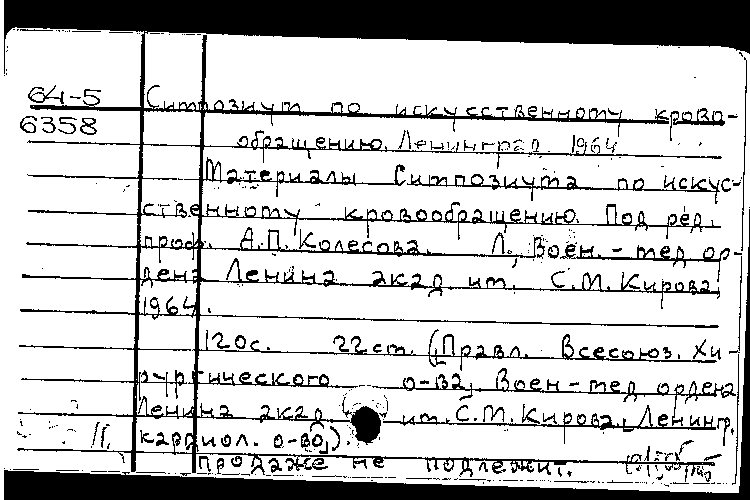 64-5
6358
Симпозиум по искусственному крово-
обращению. Ленинград. 1964
Материалы Симпозиума по искус-
ственному кровообращению. Под ред.
проф. А.П. Колесова. Л., Воен.-мед ор-
дена Ленина акад им. С.М. Кирова,
1964.
120с. 22см. (Правл. Всесоюз. Хи-
рургического о-ва, Воен-мед ордена
Ленина акад им. С.М. Кирова, Ленингр.
кардиол. о-во).
продаже не подлежит.